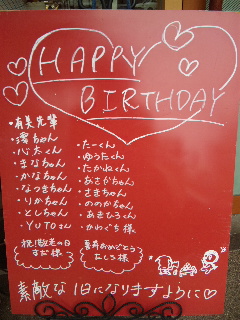 HAPPY
BIRTHDAY
・有美先輩
・澪ちゃん
・心太くん
・まなちゃん
・かなちゃん
・なつきちゃん
・りかちゃん
・としちゃん
・YUTOさん
・たーくん
・ゆうたくん
・たかねくん
・あさかちゃん
・さきちゃん
・ののかちゃん
・あきひろくん
・かわぐち様
祝!敬老の日
様
寿
おめでとう
様
素敵な1日になりますように♡